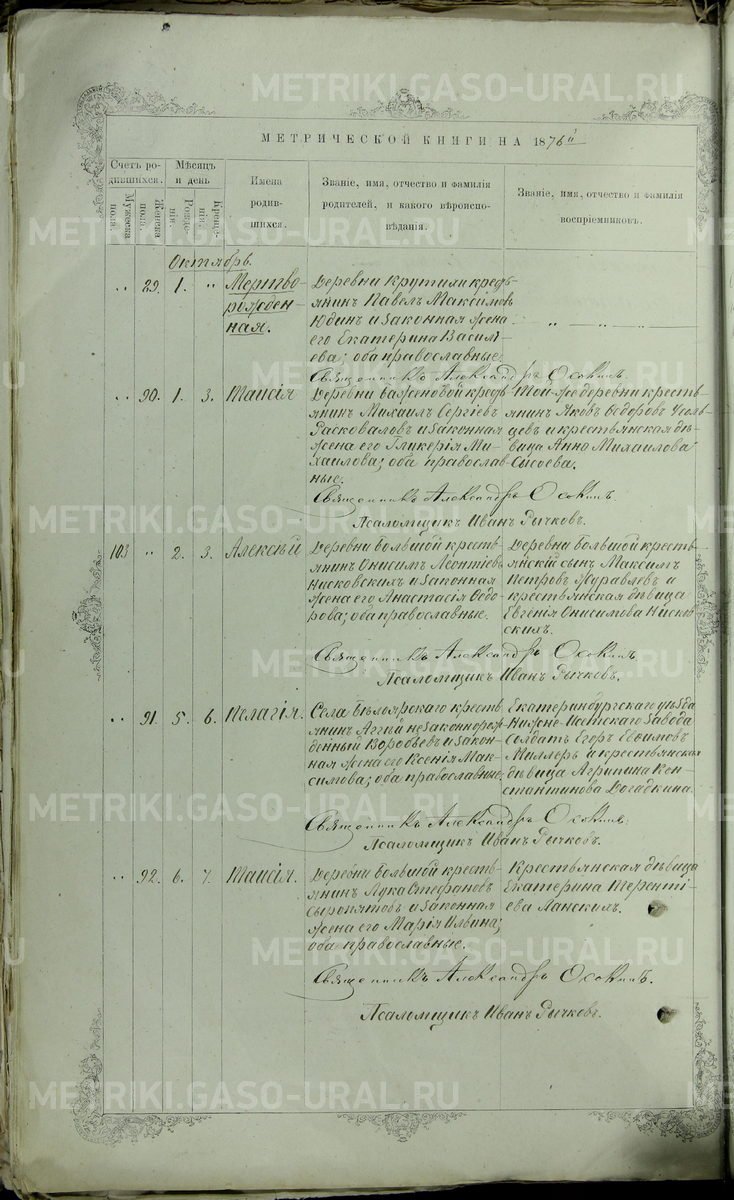 METRIKI.GASO-URAL.RU
МЕТРИЧЕСКОЙ КНИГИ НА 1876 й
Счетъ ро-
дившихся.
Мужеска
пола.
Женска
пола.
Мѣсяцъ
и день
Рожде-
нія.
Креще-
нія.
Имена
родив-
шихся.
Званіе, имя, отчество и фамилія
родителей, и какого вѣроиспо-
вѣданія.
Званіе, имя, отчество и фамилія
воспріемниковъ.
Октябрь.
" 89. 1. " Мертво
рожден-
ная.
Деревни Крутихи кресть
янинъ Павелъ Максимовъ
Юдинъ и законная жена
его Екатерина Василь
ева; оба православные.
Священникъ Александръ Осокинъ.
" 90. 1. 3. Таисія
Деревни Баженовой кресть
янинъ Михаилъ Сергіевъ
Расковаловъ и законная
жена его Гликерія Ми-
хаилова; оба православ-
ные.
Той же деревни кресть-
янинъ Яковъ Ѳедоровъ
цевъ и крестьянская дѣ-
вица Анна Михаилова
Сысоева.
Священникъ Александръ Осокинъ.
Псаломщикъ Иванъ Рычковъ.
103 " 2. 3. Алексѣй
Деревни Большой кресть-
янинъ Онисимъ Леонтіевъ
Нисковскихъ и законная
жена его Анастасія Ѳедо-
рова; оба православные.
Деревни Большой кресть-
янскій сынъ Максимъ
Петровъ Журавлевъ и
крестьянская дѣвица
Евгенія Онисимова Нисков
скихъ.
Священникъ Александръ Осокинъ
Псаломщикъ Иванъ Рычковъ.
" 91. 5. 6. Пелагія.
Села Бѣлоярскаго кресть
янинъ Аггей незаконнорож
денный Воробьевъ и закон-
ная жена его Ксенія Мак-
симова; оба православные;
Екатеринбургскаго уѣзда
Нижне-Исетскаго завода
солдатъ Егоръ Евѳимовъ
Миллеръ и крестьянская
дѣвица Агрипина Кон-
стантинова Догадкина.
Священникъ Александръ Осокинъ.
Псаломщикъ Иванъ Рычковъ.
" 92. 6. 7. Таисія.
Деревни Большой кресть-
янинъ Лука Стефановъ
Сыропятовъ и законная
жена его Марія Ильина;
оба православные.
Крестьянская дѣвица
Екатерина Теренті-
ева Ланскихъ.
Священникъ Александръ Осокинъ.
Псаломщикъ Иванъ Рычковъ.